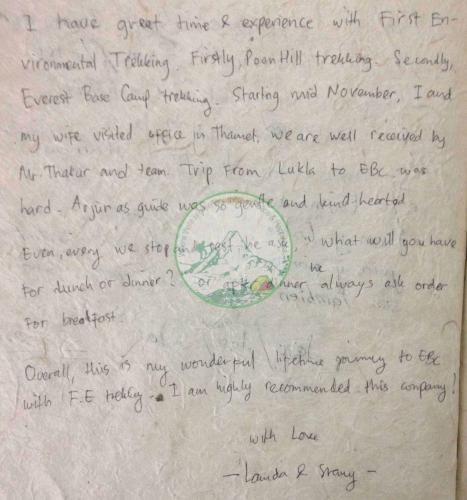 I have great time & experience with First En-
vironmental Trekking. Firstly, Poon Hill trekking. Secondly,
Everest Base Camp trekking. Starting mid November, I and
my wife visited office in Thamel, we are well received by
Mr. Thakur and team. Trip From Lukla to EBC was
hard. Arjun as guide was so gentle and kind-hearted
Even, every we stop and rest he ask, "what will you have
For Lunch or dinner? or after dinner he always ask order
For breakfast.
Overall, this is my wonderful lifetime journey to EBC
with F.E trekking. I am highly recommended this company!
with Love
- & -